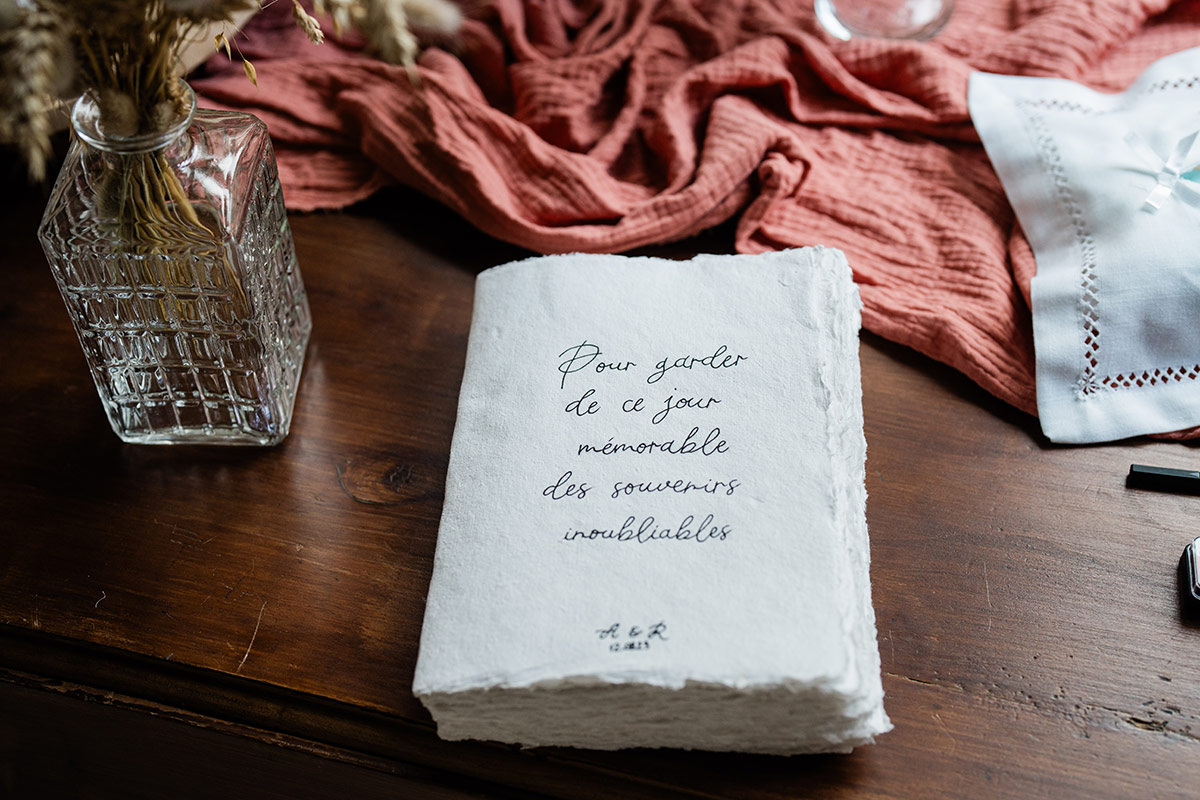 Pour garder
de ce jour
mémorable
des souvenirs
inoubliables
A & R